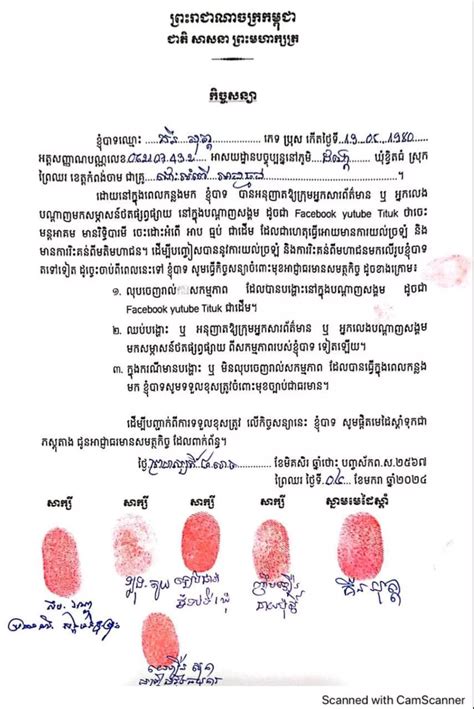 ព្រះរាជាណាចក្រកម្ពុជា
ជាតិ សាសនា ព្រះមហាក្សត្រ
កិច្ចសន្យា
ខ្ញុំបាទឈ្មោះ ភេទ ប្រុស កើតថ្ងៃទី
អត្តសញ្ញាណបណ្ណលេខ អាស័យដ្ឋានបច្ចុប្បន្ននៅភូមិ ឃុំខ្វិតធំ ស្រុក
ព្រៃឈរ ខេត្តកំពង់ចាម ជាគ្រូ
ដោយនៅពេលកន្លងមក ខ្ញុំបាទ បានអនុញាតឱ្យក្រុមអ្នកសារព័ត៌មាន ឬ អ្នកលេង
បណ្តាញមកសម្ភាសន៍ថតផ្សព្វផ្សាយ នៅក្នុងបណ្តាញសង្គម ដូចជា Facebook yutube Tituk ថាចេះ
មន្តអាគម មានរិទ្ធិបារមី ចេះដោះអំពើ អាប ធ្មប់ ជាដើម ដែលជាហេតុធ្វើអោយមានការយល់ច្រឡំ និង
មានការរិះគន់ពីមតិមហាជន។ ដើម្បីចៀសវាងនូវការយល់ច្រឡំ និងការរិះគន់ពីមហាជនមកលើរូបខ្ញុំបាទ
តទៅទៀត ដូច្នេះចាប់ពីពេលនេះទៅ ខ្ញុំបាទ សូមធ្វើកិច្ចសន្យាចំពោះមុខអាជ្ញាធរមានសមត្ថកិច្ច ដូចខាងក្រោម៖
១. លុបចេញរាល់ សកម្មភាព ដែលបានបង្ហោះនៅក្នុងបណ្តាញសង្គម ដូចជា
Facebook yutube Tituk ជាដើម។
២. ឈប់បង្ហោះ ឬ អនុញាតឱ្យក្រុមអ្នកសារព័ត៌មាន ឬ អ្នកលេងបណ្តាញសង្គម
មកសម្ភាសន៍ថតផ្សព្វផ្សាយ ពីសកម្មភាពរបស់ខ្ញុំបាទ ទៀតឡើយ។
៣. ក្នុងករណីមានបង្ហោះ ឬ មិនលុបចេញរាល់សកម្មភាព ដែលបានធ្វើក្នុងពេលកន្លង
មក ខ្ញុំបាទសូមទទួលខុសត្រូវចំពោះមុខច្បាប់ជាធរមាន។
ដើម្បីបញ្ជាក់ពីការទទួលខុសត្រូវ លើកិច្ចសន្យានេះ ខ្ញុំបាទ សូមផ្តិតមេដៃស្តាំទុកជា
ភស្តុតាង ជូនអាជ្ញាធរមានសមត្ថកិច្ច ដែលពាក់ព័ន្ធ។
ថ្ងៃ ខែមិគសិរ ឆ្នាំថោះ បញ្ចស័កព.ស.២៥៦៧
ព្រៃឈរ ថ្ងៃទី ខែមករា ឆ្នាំ២០២៤
សាក្សី សាក្សី សាក្សី សាក្សី ស្នាមមេដៃស្តាំ
Scanned with CamScanner